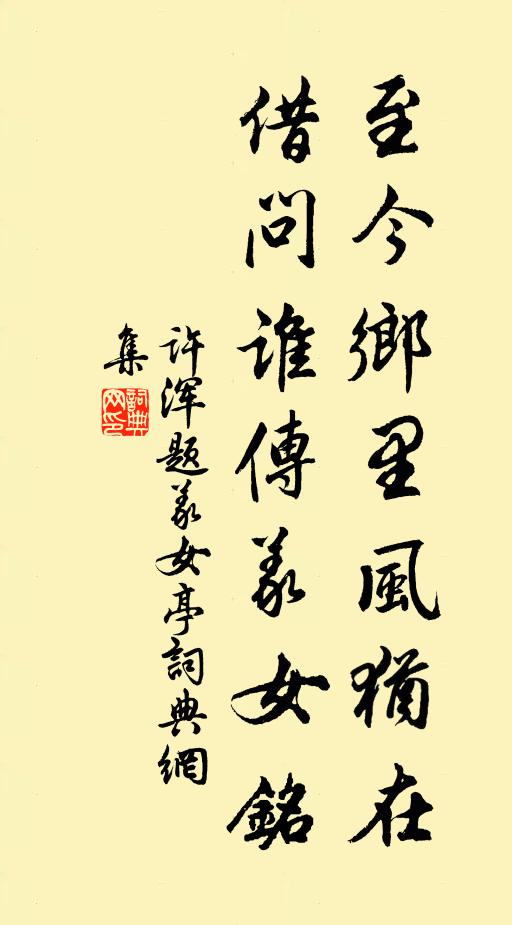 至今鄉里風猶在
借問誰傳義女銘
许浑题義女亭詞典網
集
詞典网印